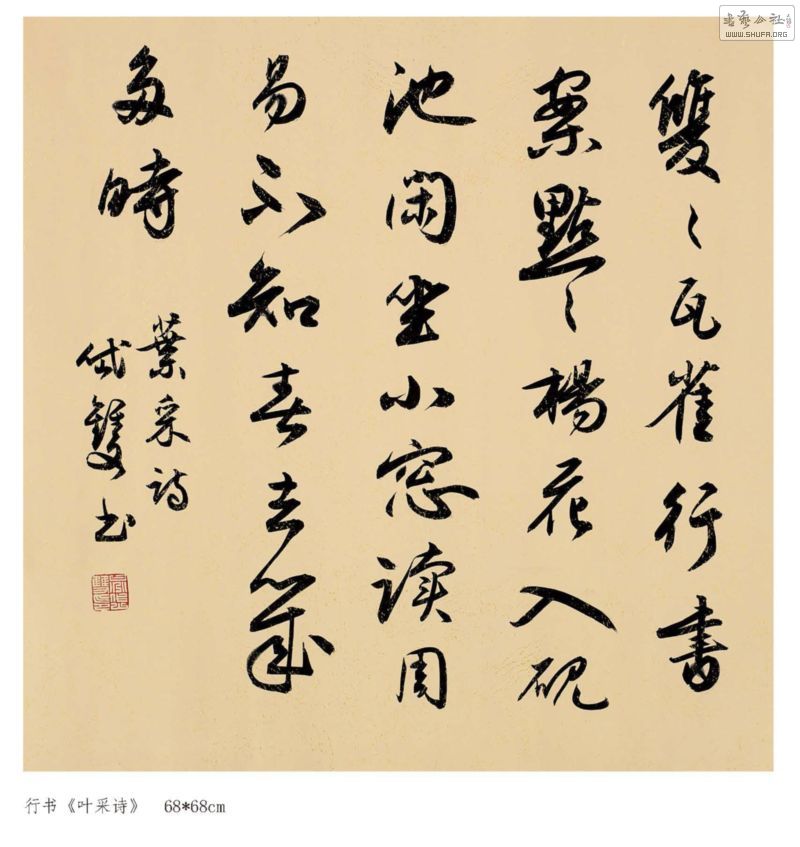 雙〻瓦雀行書
案點〻楊花入硯
池閑坐小窓读周
易不知春去幾
多時
葉采诗
岱雙书
行书《叶采诗》 68*68cm
书艺公社
WWW.SHUFA.ORG